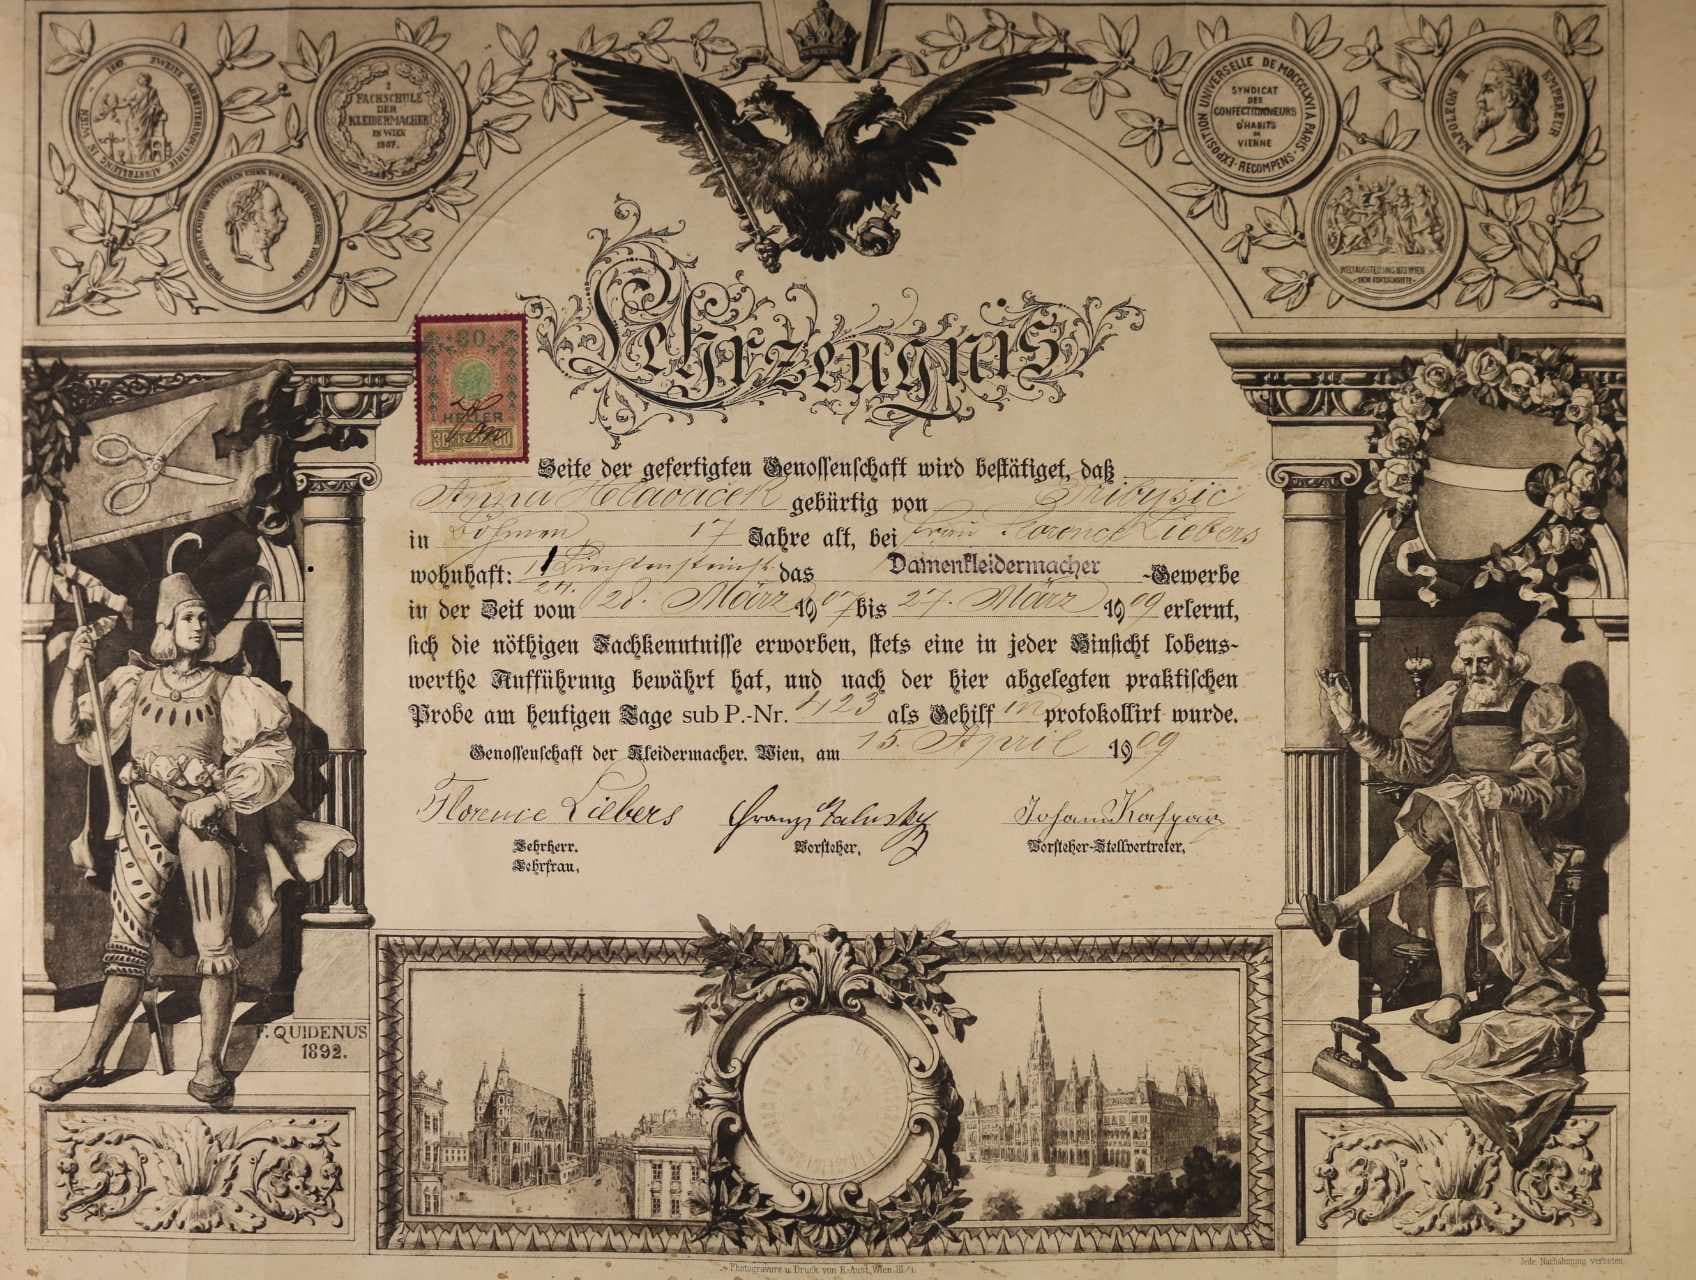 ZWEITE ARBEITERINDUSTRIE AUSSTELLUNG IN WIEN
FACHSCHULE
DER
KLEIDERMACHER
IN WIEN
EXPOSITION UNIVERSELLE DE MDCCCLXVI PARIS · RECOMPENS ·
SYNDICAT
DES
CONFECTIONNEURS
D'HABITS
VIENNE
NAPOLEON III EMPEREUR
WELTAUSSTELLUNG 1873 WIEN
Lehrzeugnis
30
HELLER
Seite der gefertigten Genossenschaft wird bestätiget, daß
Anna Hlavacek gebürtig von
in Böhmen 17 Jahre alt, bei Frau Florence Liebers
wohnhaft: das Damenkleidermacher -Gewerbe
in der Zeit vom 28. März 1907 bis 27. März 1909 erlernt,
sich die nöthigen Fachkenntnisse erworben, stets eine in jeder Hinsicht lobens-
werthe Aufführung bewährt hat, und nach der hier abgelegten praktischen
Probe am heutigen Tage sub P.-Nr. 423 als Gehilfin protokollirt wurde.
Genossenschaft der Kleidermacher. Wien, am 15. April 1909
Florence Liebers
Lehrherr.
Lehrfrau,
Vorsteher,
Johann Kaspar
Vorsteher-Stellvertreter.
F. QUIDENUS
1892.
Photogravure u. Druck von
Jede Nachahmung verboten.